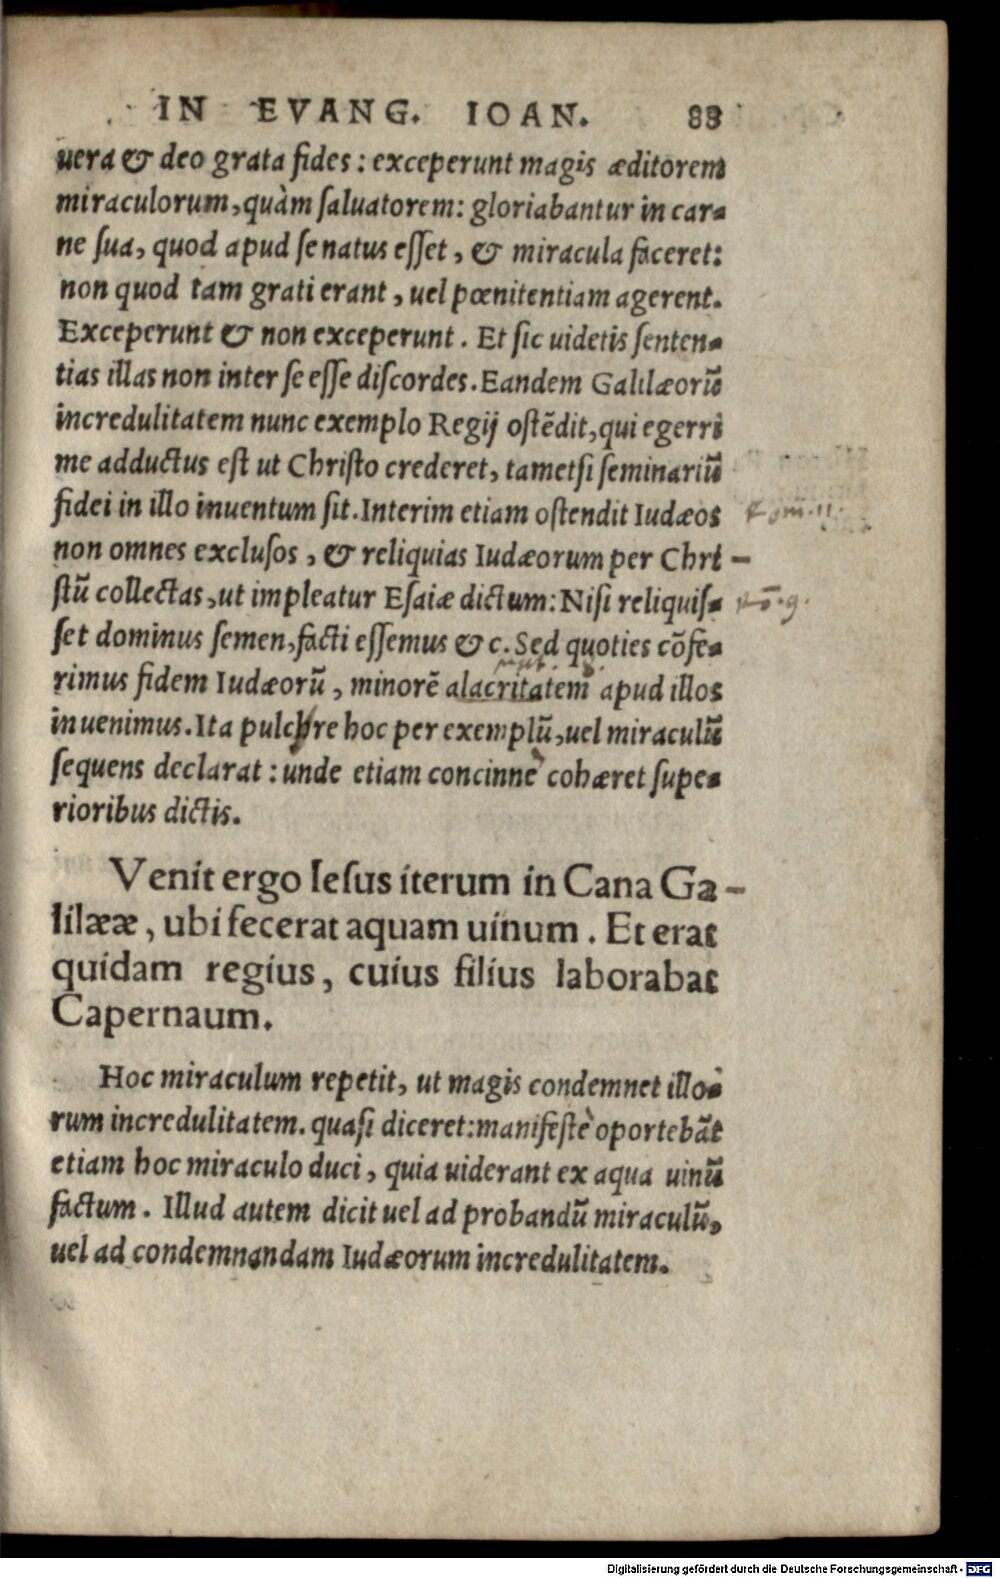 IN EVANG. IOAN. 83
uera & deo grata fides: exceperunt magis æditorem
miraculorum, quàm ſaluatorem: gloriabantur in car-
ne ſua, quod apud ſe natus eſſet, & miracula faceret:
non quod tam grati erant, uel pœnitentiam agerent.
Exceperunt & non exceperunt. Et ſic uidetis ſenten-
tias illas non inter ſe eſſe diſcordes. Eandem Galilæorū
incredulitatem nunc exemplo Regij oſtēdit, qui egerri
me adductus eſt ut Chriſto crederet, tametſi ſeminariū
fidei in illo inuentum ſit. Interim etiam oſtendit Iudæos
Rom. 11.
non omnes excluſos, & reliquias Iudæorum per Chri-
ſtū collectas, ut impleatur Eſaiæ dictum: Niſi reliquiſ-
Rō. 9.
ſet dominus ſemen, facti eſſemus & c. Sed quoties cōfe-
rimus fidem Iudæorū, minorē alacritatem apud illos
inuenimus. Ita pulchre hoc per exemplū, uel miraculū
ſequens declarat: unde etiam concinnè cohæret ſupe-
rioribus dictis.
Venit ergo Ieſus iterum in Cana Ga-
lilææ, ubi fecerat aquam uinum. Et erat
quidam regius, cuius filius laborabat
Capernaum.
Hoc miraculum repetit, ut magis condemnet illo-
rum incredulitatem. quaſi diceret: manifeſtè oportebāt
etiam hoc miraculo duci, quia uiderant ex aqua uinū
factum. Illud autem dicit uel ad probandū miraculū,
uel ad condemnandam Iudæorum incredulitatem.
Digitalisierung gefördert durch die Deutsche Forschungsgemeinschaft - DFG